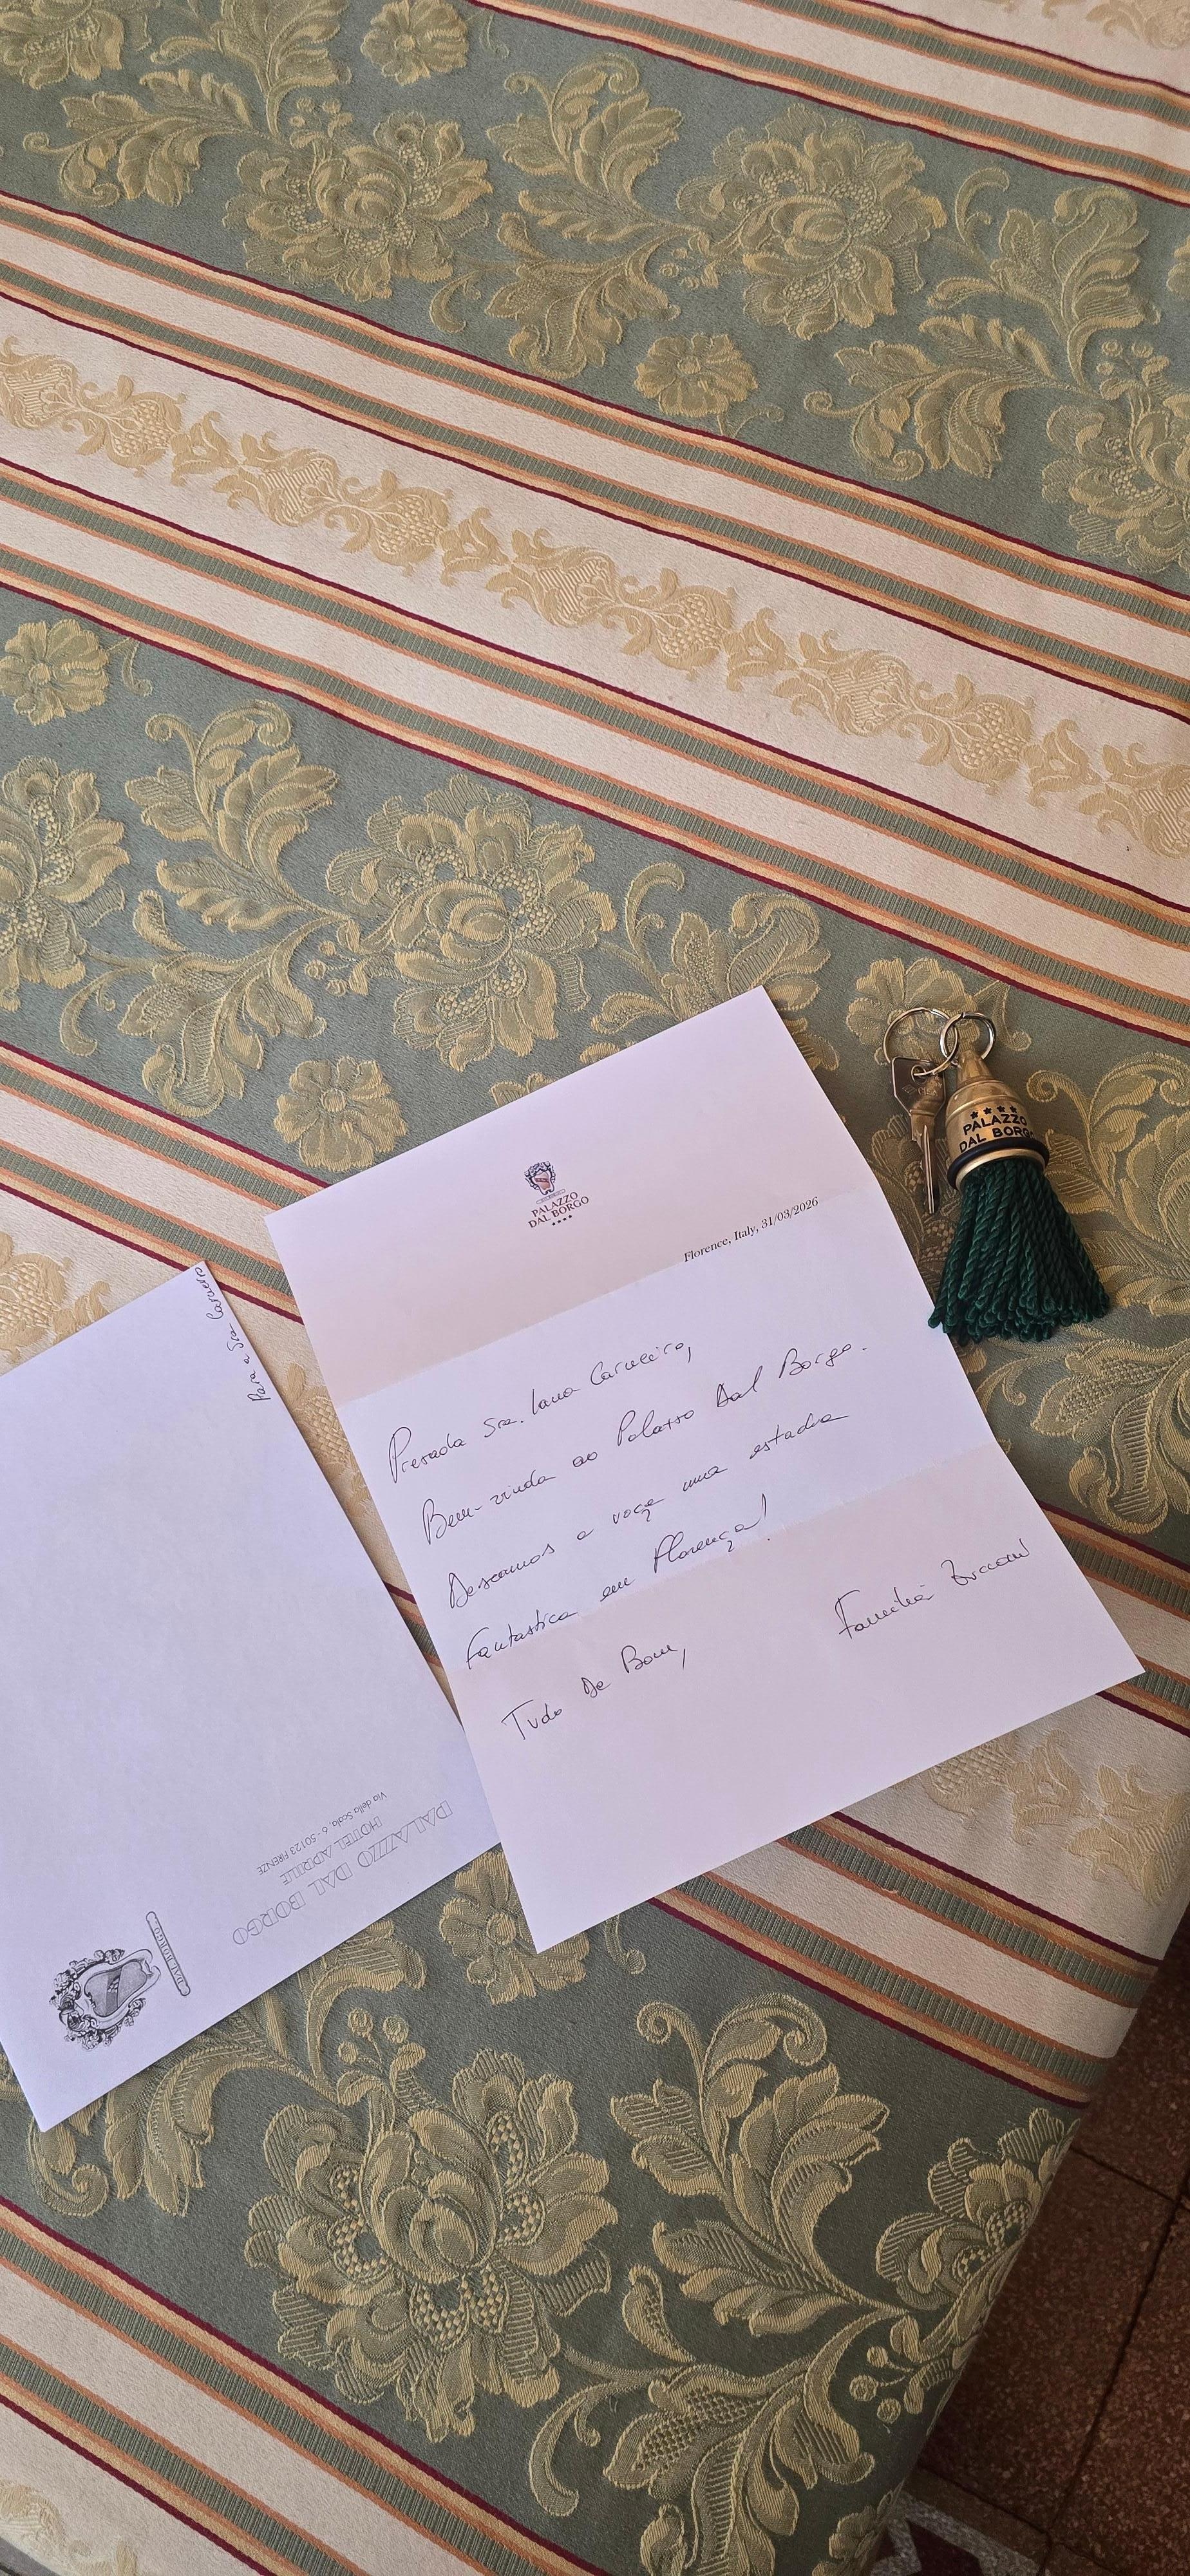 PALAZZO
DAL BORGO
★★★★
Florence, Italy, 31/03/2026
Prezada Sra. Iana Carneiro,
Bem-vinda ao Palazzo Dal Borgo.
Desejamos a voçe uma estadia
Fantastica em Florença!
Tudo De Bom,
Familia
Para a Sra Carneiro
PALAZZO DAL BORGO
HOTEL APRILE
Via della Scala, 6 - 50123 FIRENZE
DAL BORGO
★★★★
PALAZZO
DAL BORGO